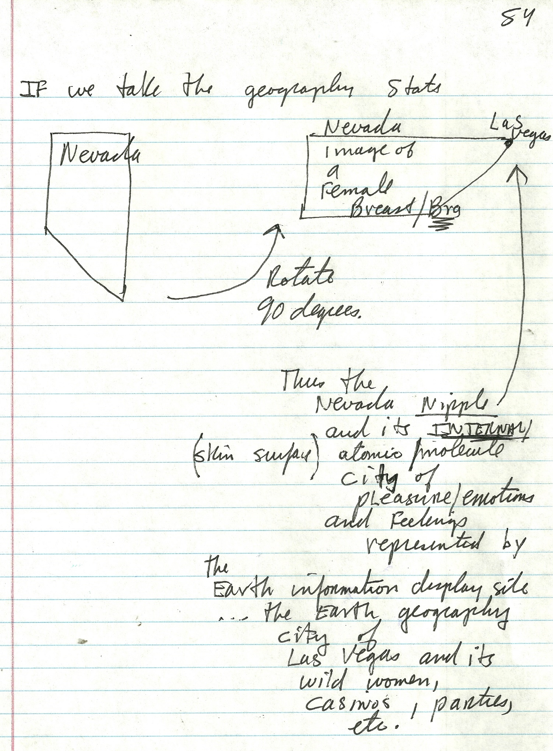 54
IF we take the geography Stats
Nevada
Nevada
Las
Vegas
image of
a
Female
Breast/Bra
Rotate
90 degrees.
Thus the
Nevada Nipple
and its INTERNAL/
(skin surface) atomic/molecule
city of
pleasure/emotions
and Feelings
represented by
the
Earth information display site
... the Earth geography
city of
Las Vegas and its
wild women,
casinos, parties,
etc.